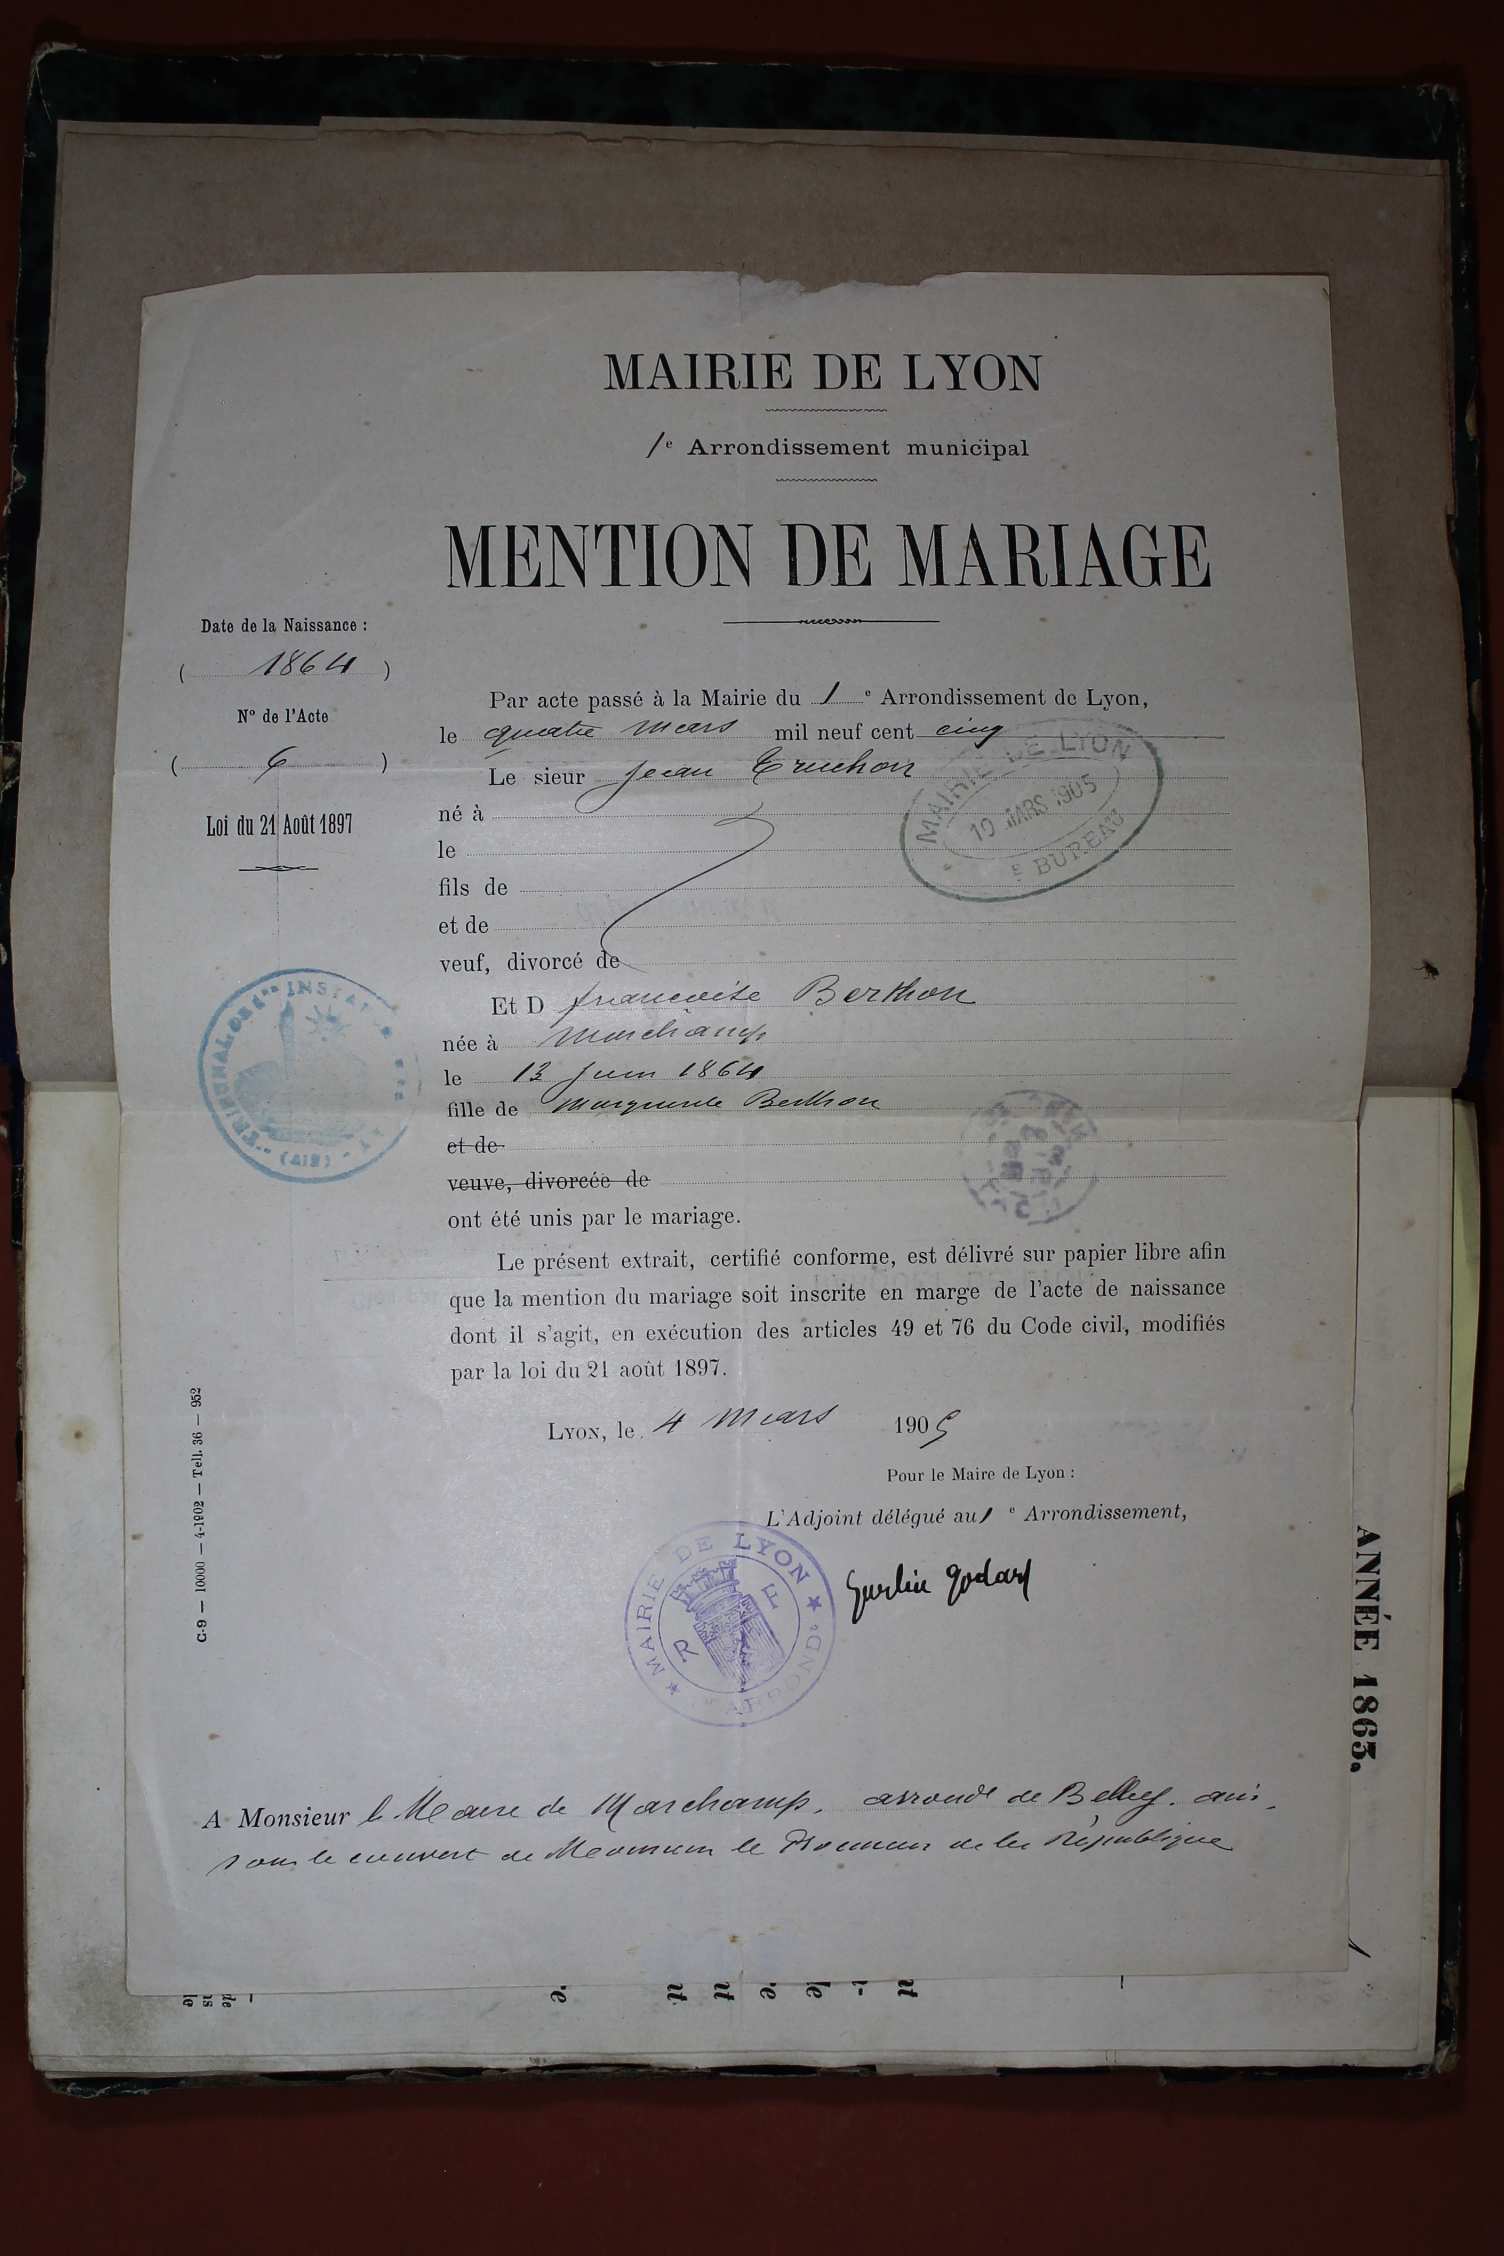 MAIRIE DE LYON
1e Arrondissement municipal
MENTION DE MARIAGE
Date de la Naissance :
( 1864 )
N° de l'Acte
( 6 )
Loi du 21 Août 1897
Par acte passé à la Mairie du 1e Arrondissement de Lyon,
le quatre Mars mil neuf cent cinq
Le sieur Jean Truchon
né à
le
fils de
et de
veuf, divorcé de
MAIRIE DE LYON
10 MARS 1905
E BUREAU
Et D françoise Berthon
née à Marchamp
le 13 Juin 1864
fille de Marguerite Berthon
et de
veuve, divorcée de
ont été unis par le mariage.
TRIBUNAL INSTANCE
(AIN)
Le présent extrait, certifié conforme, est délivré sur papier libre afin
que la mention du mariage soit inscrite en marge de l'acte de naissance
dont il s'agit, en exécution des articles 49 et 76 du Code civil, modifiés
par la loi du 21 août 1897.
Lyon, le 4 Mars 1905
Pour le Maire de Lyon :
L'Adjoint délégué au 1e Arrondissement,
MAIRIE DE LYON
R F
ARROND
C-9 — 10000 — 4-1902 — Tell. 36 — 952
A Monsieur le Maire de Marchamp, arrondt de Belley. ain.
sous le couvert de Monsieur le Procureur de la République
ANNÉE 1865.